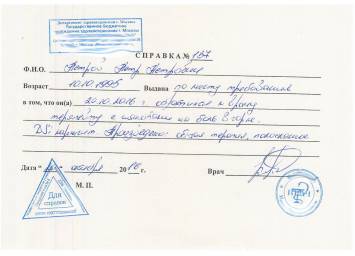 Департамент здравоохранения г. Москвы
Государственное бюджетное
учреждение здравоохранения г. Москвы
СПРАВКА № 157
Ф.И.О. Петров Петр Петрович
Возраст 10.10.1995 Выдана по месту требования
в том, что он(а) 20.10.2016 г. обратился к врачу
терапевту с жалобами на боль в горле.
DS: Произведено: общая терапия, полоскание
Дата октября 2016 г. Врач
М. П.
Для
справок